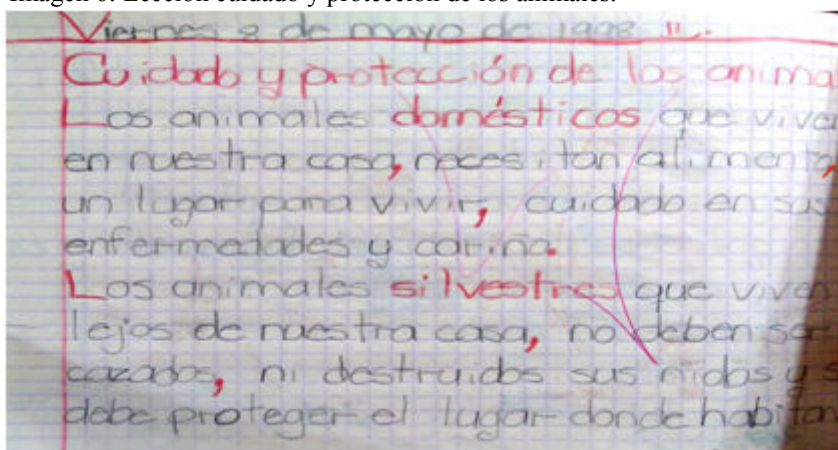 Imagen 6. Lección cuidado y protección de los animales.
Viernes 8 de mayo de 1998
Cuidado y protección de los anima
Los animales domésticos que vive
en nuestra casa, necesitan alimento,
un lugar para vivir, cuidado en sus
enfermedades y cariño.
Los animales silvestres que viven
lejos de nuestra casa, no deben ser
cazados, ni destruidos sus nidos y s
debe proteger el lugar donde habitan